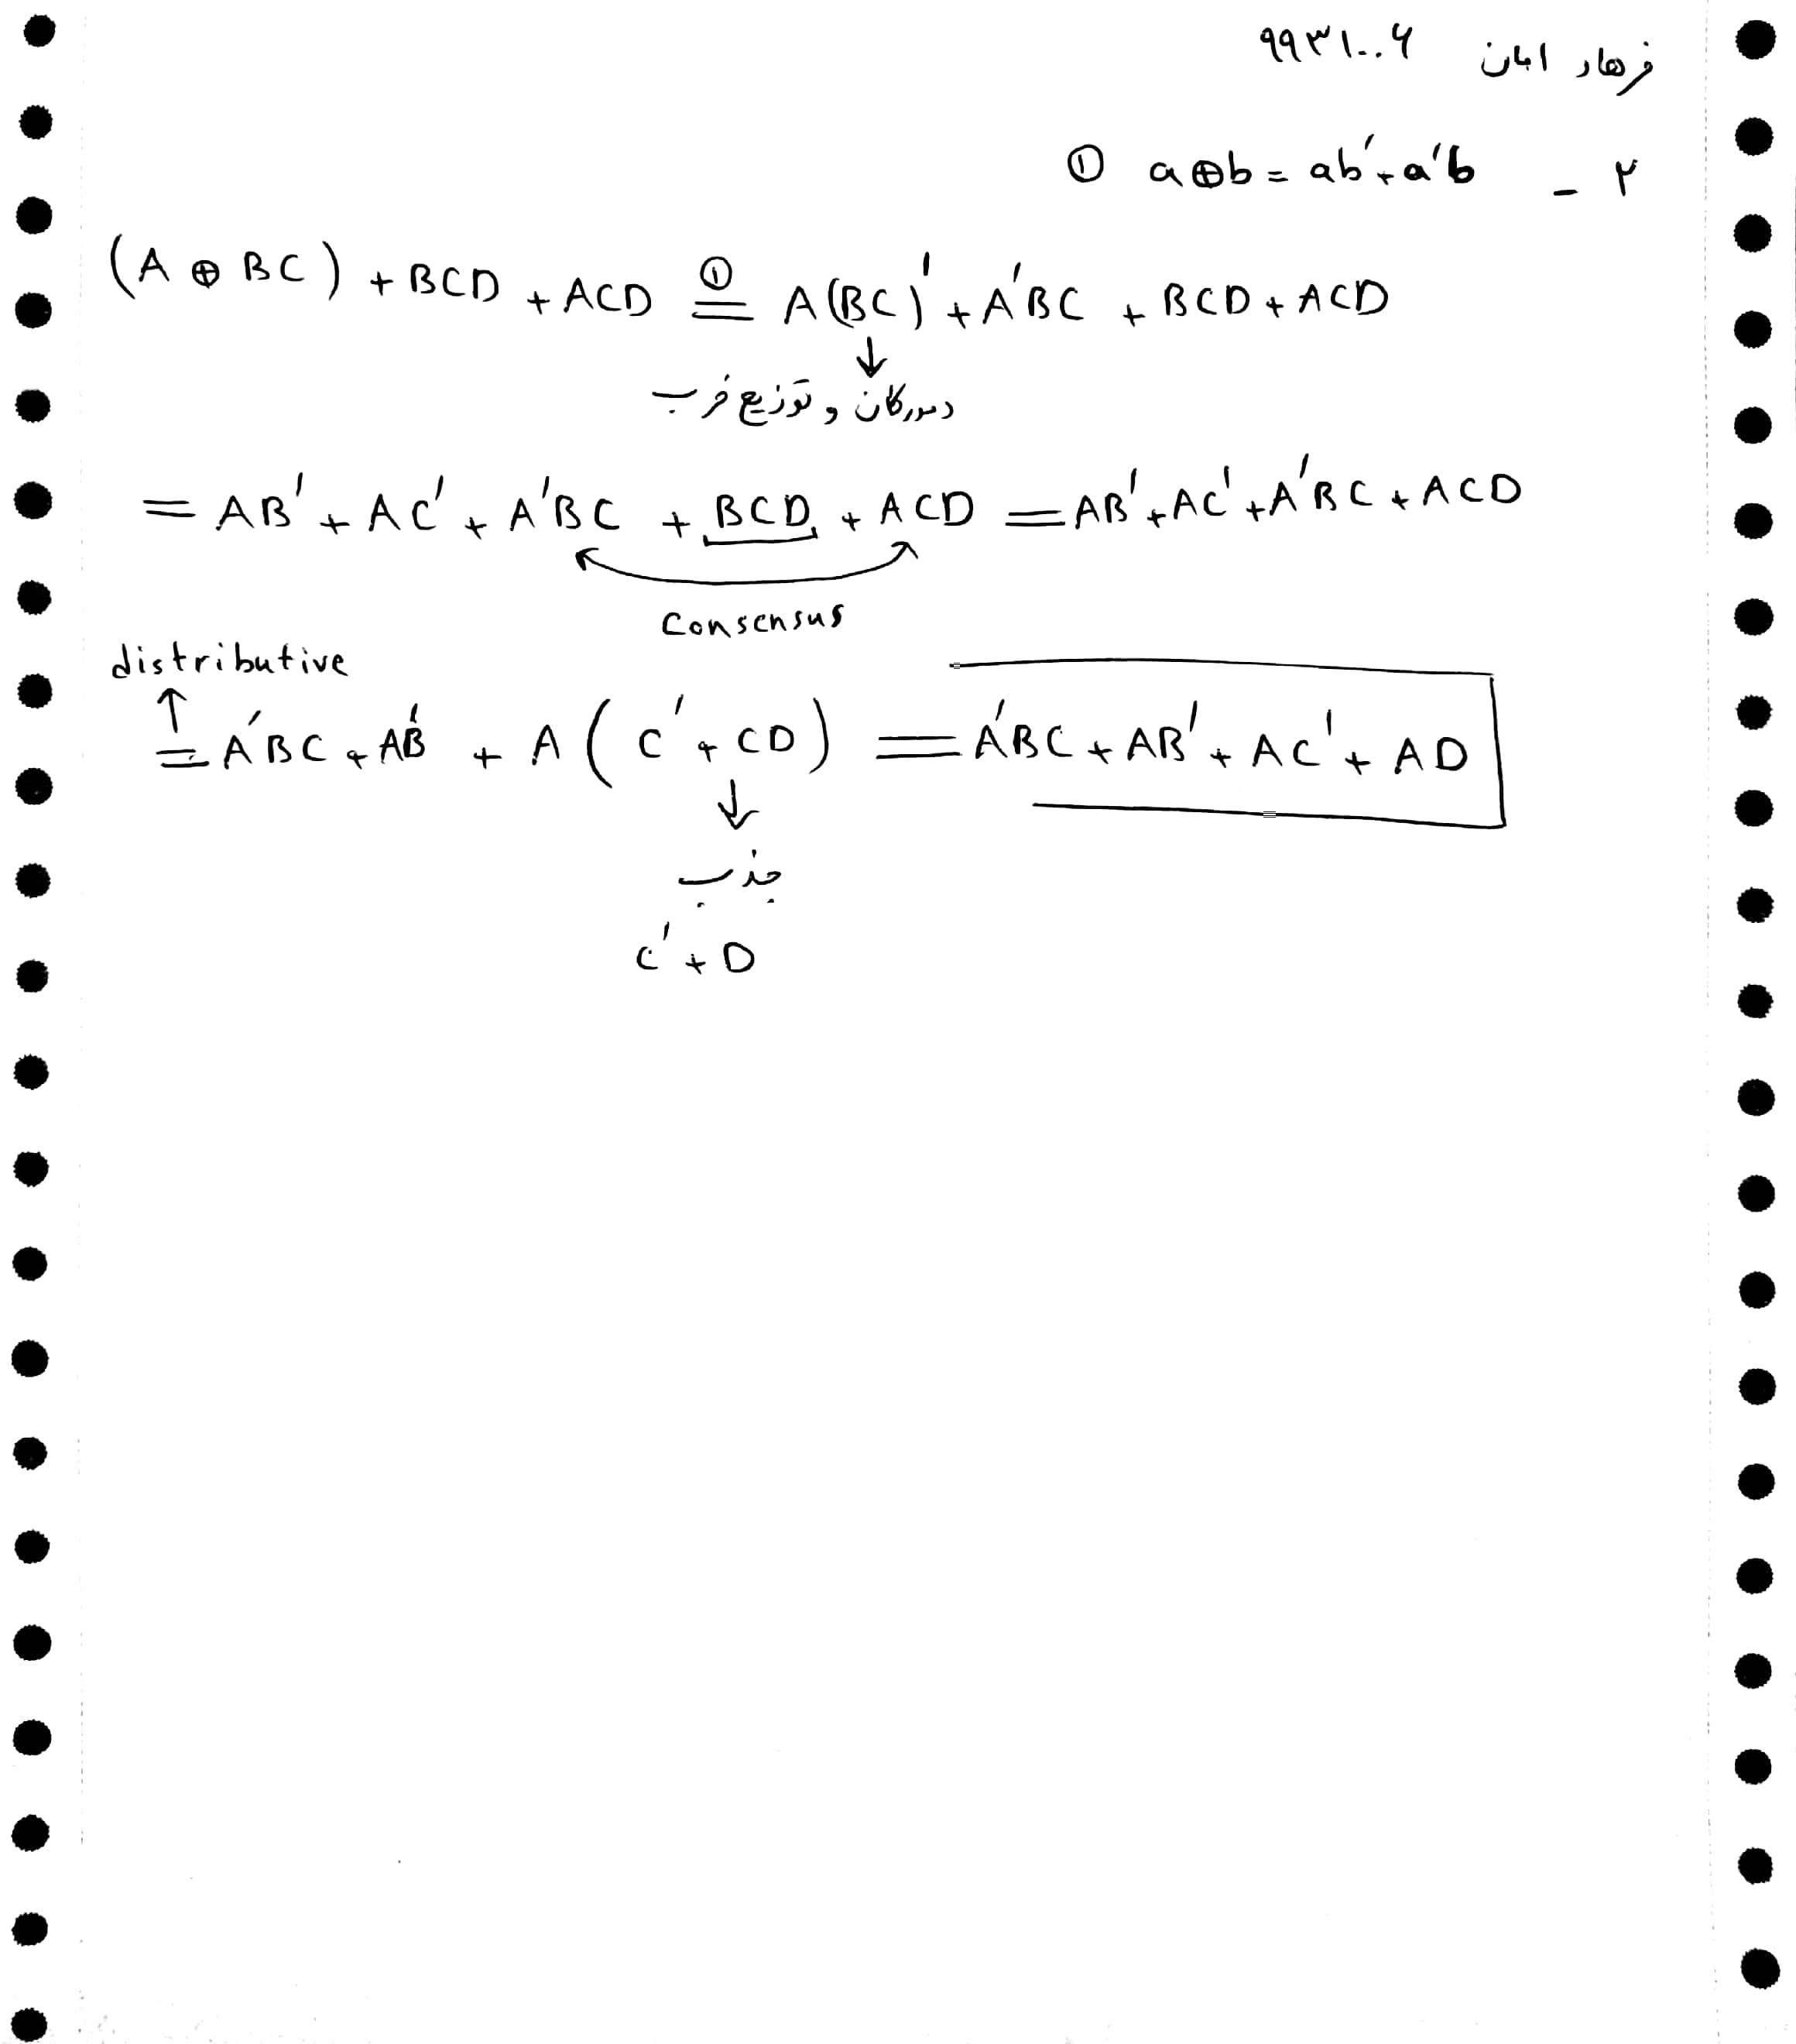 فرهاد امان ۹۹۳۱۰۰۶
۳ - ① a⊕b = ab' + a'b
(A ⊕ BC) + BCD + ACD ①= A(BC)' + A'BC + BCD + ACD
↓
دمورگان و توزیع ضرب
= AB' + AC' + A'BC + BCD + ACD = AB' + AC' + A'BC + ACD
Consensus
distributive
↑
= A'BC + AB' + A(C' + CD) = A'BC + AB' + AC' + AD
↓
جذب
C' + D